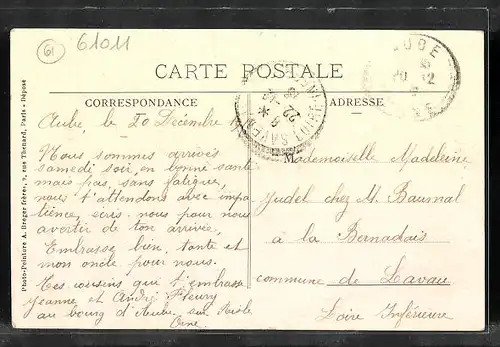 61
61011
AUBE
20 12
CARTE POSTALE
CORRESPONDANCE
ADRESSE
Aube, le 20 Décembre
Nous sommes arrivés
samedi soir, en bonne santé
mais pas sans fatigue,
nous t'attendons avec impa
tience, écris-nous pour nous
avertir de ton arrivée,
Embrasse bien, tante et
mon oncle pour nous.
Tes cousins qui t'embrasse
Jeanne et André Fleury
au bourg d'Aube sur Risle
Orne
Mademoiselle Madeleine
Judel chez M. Baumal
à la Bernadais
commune de Lavau
Loire Inférieure
Photo-Peinture A. Breger Frères, 9, rue Thénard, Paris - Déposé